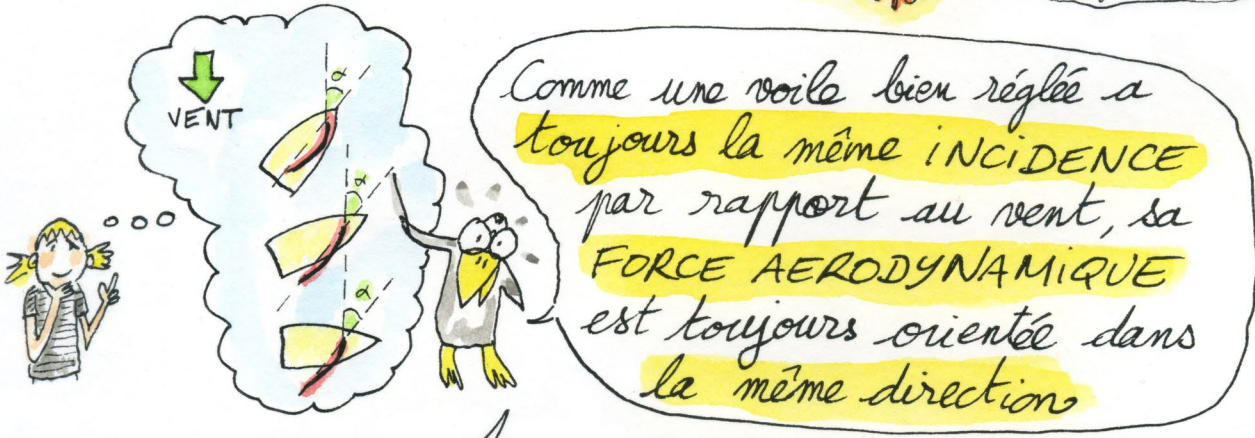 VENT
α
α
α
Comme une voile bien réglée a
toujours la même iNCiDENCE
par rapport au vent, sa
FORCE AERODYNAMiQUE
est toujours orientée dans
la même direction